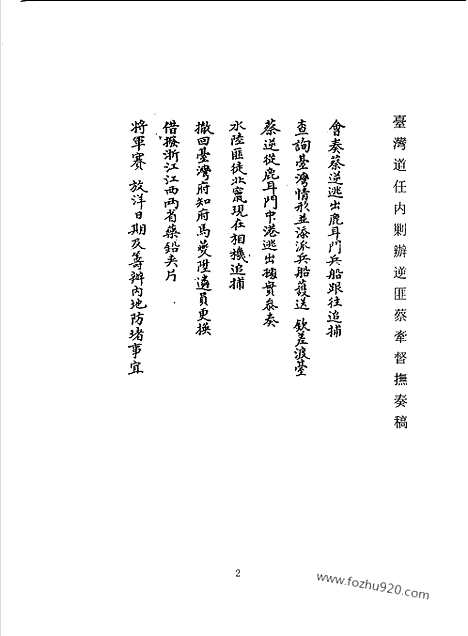 臺灣道任内剿辦逆匪蔡牽督撫奏稿
會奏蔡逆逃出鹿耳門兵船跟往追捕
查詢臺灣情形並添派兵船護送 欽差渡臺
蔡逆從鹿耳門中港逃出據實叅奏
水陸匪徒北竄現在相機追捕
撤回臺灣府知府馬夔陞遴員更換
借撥浙江江西兩省藥鉛夾片
將軍賽 放洋日期及籌辦內地防堵事宜
2
www.fozhu920.com